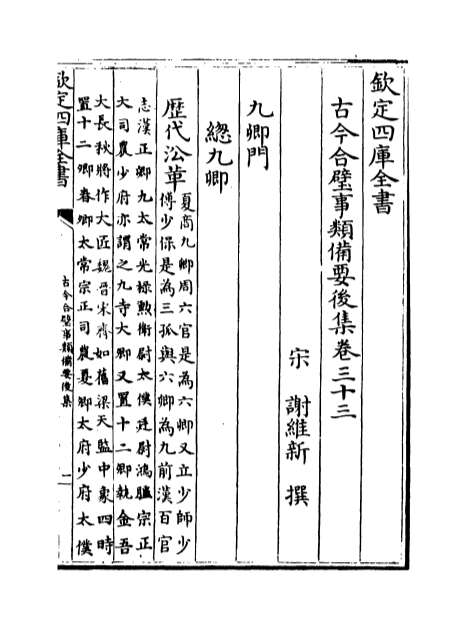 欽定四庫全書
古今合璧事類備要後集卷三十三
宋 謝維新 撰
九卿門
總九卿
歷代沿革
夏商九卿周六官是為六卿又立少師少
傅少保是為三孤與六卿為九前漢百官
志漢正卿九太常光祿勲衞尉太僕廷尉鴻臚宗正
大司農少府亦謂之九寺大卿又置十二卿執金吾
大長秋將作大匠魏晉宋齊如舊梁天監中象四時
置十二卿春卿太常宗正司農夏卿太府少府太僕
欽定四庫全書
古今合璧事類備要後集
一